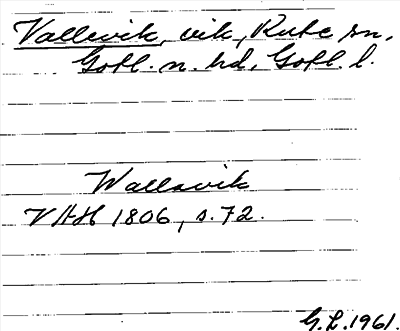 Vallevik, vik, Rute sn,
Gotl. n. hd, Gotl. l.
Wallavik
VAH 1806, s. 72.
G. L. 1961.